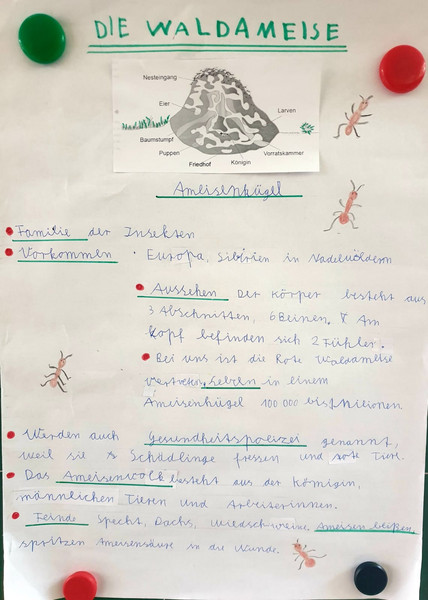 DIE WALDAMEISE
Nesteingang
Eier
Larven
Baumstumpf
Vorratskammer
Puppen
Königin
Friedhof
Ameisenhügel
Familie der Insekten
Vorkommen Europa, Sibirien in Nadelwäldern
Aussehen Der Körper besteht aus
3 Abschnitten, 6 Beinen. Am
Kopf befinden sich 2 Fühler.
Bei uns ist die Rote Waldameise
Leben in einem
Ameisenhügel 100 000 bis Milionen
Werden auch Gesundheitspolizei genannt,
weil sie Schädlinge fressen und tote Tiere.
Das Ameisenvolk besteht aus der Königin,
männlichen Tieren und Arbeiterinnen.
Feinde Specht, Dachs, Wiedschweine Ameisen beißen,
spritzen Ameisensäure in die Wunde.